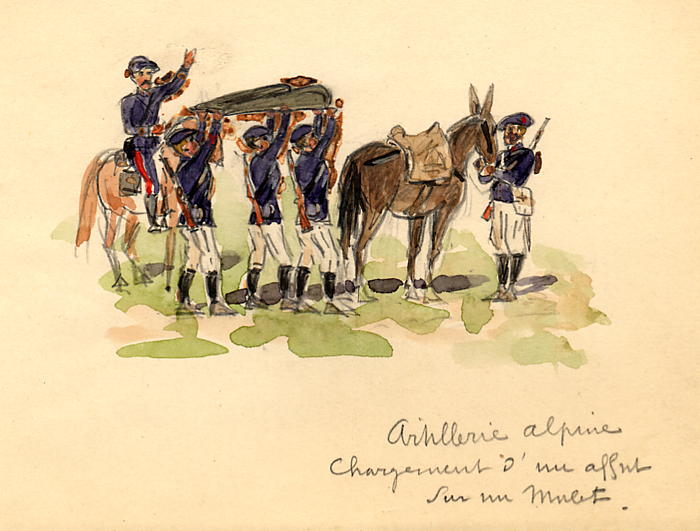 Artillerie alpine
Chargement d'un affut
sur un Mulet.